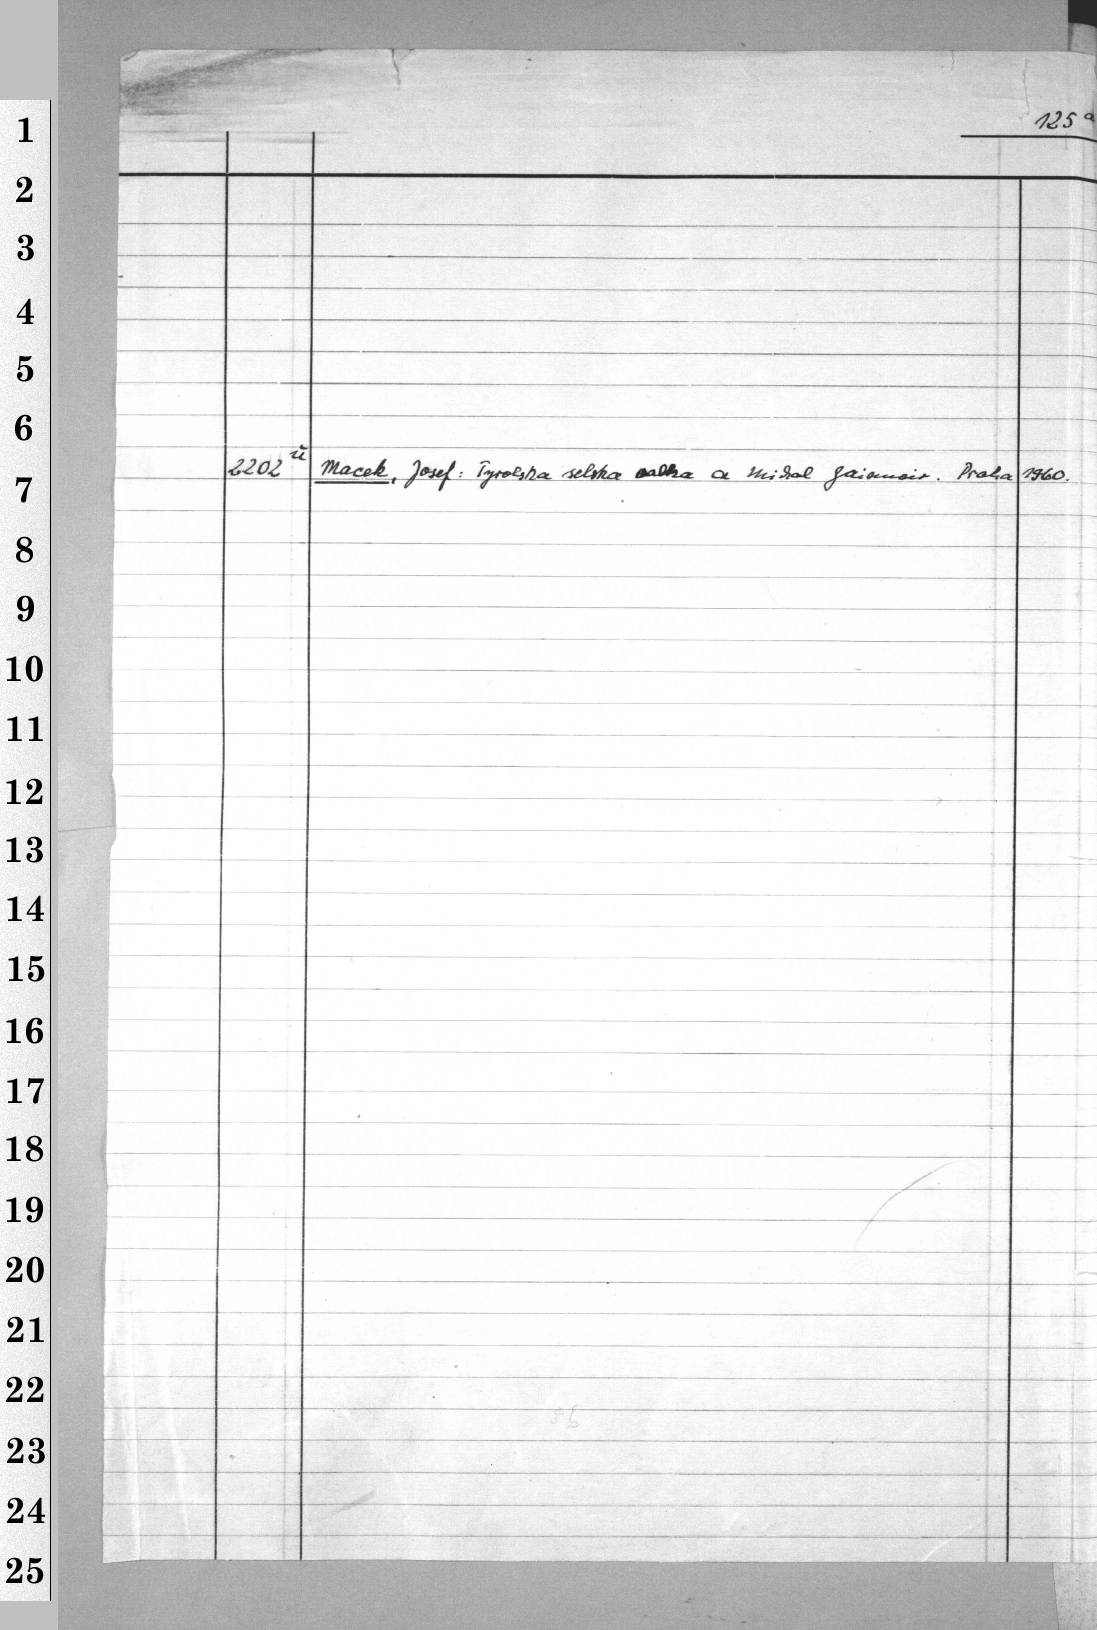 125 a
1
2
3
4
5
6
7
8
9
10
11
12
13
14
15
16
17
18
19
20
21
22
23
24
25
2202 ü Macek, Josef: Tyrolska selska valka a Michal Gaismair. Praha 1960.